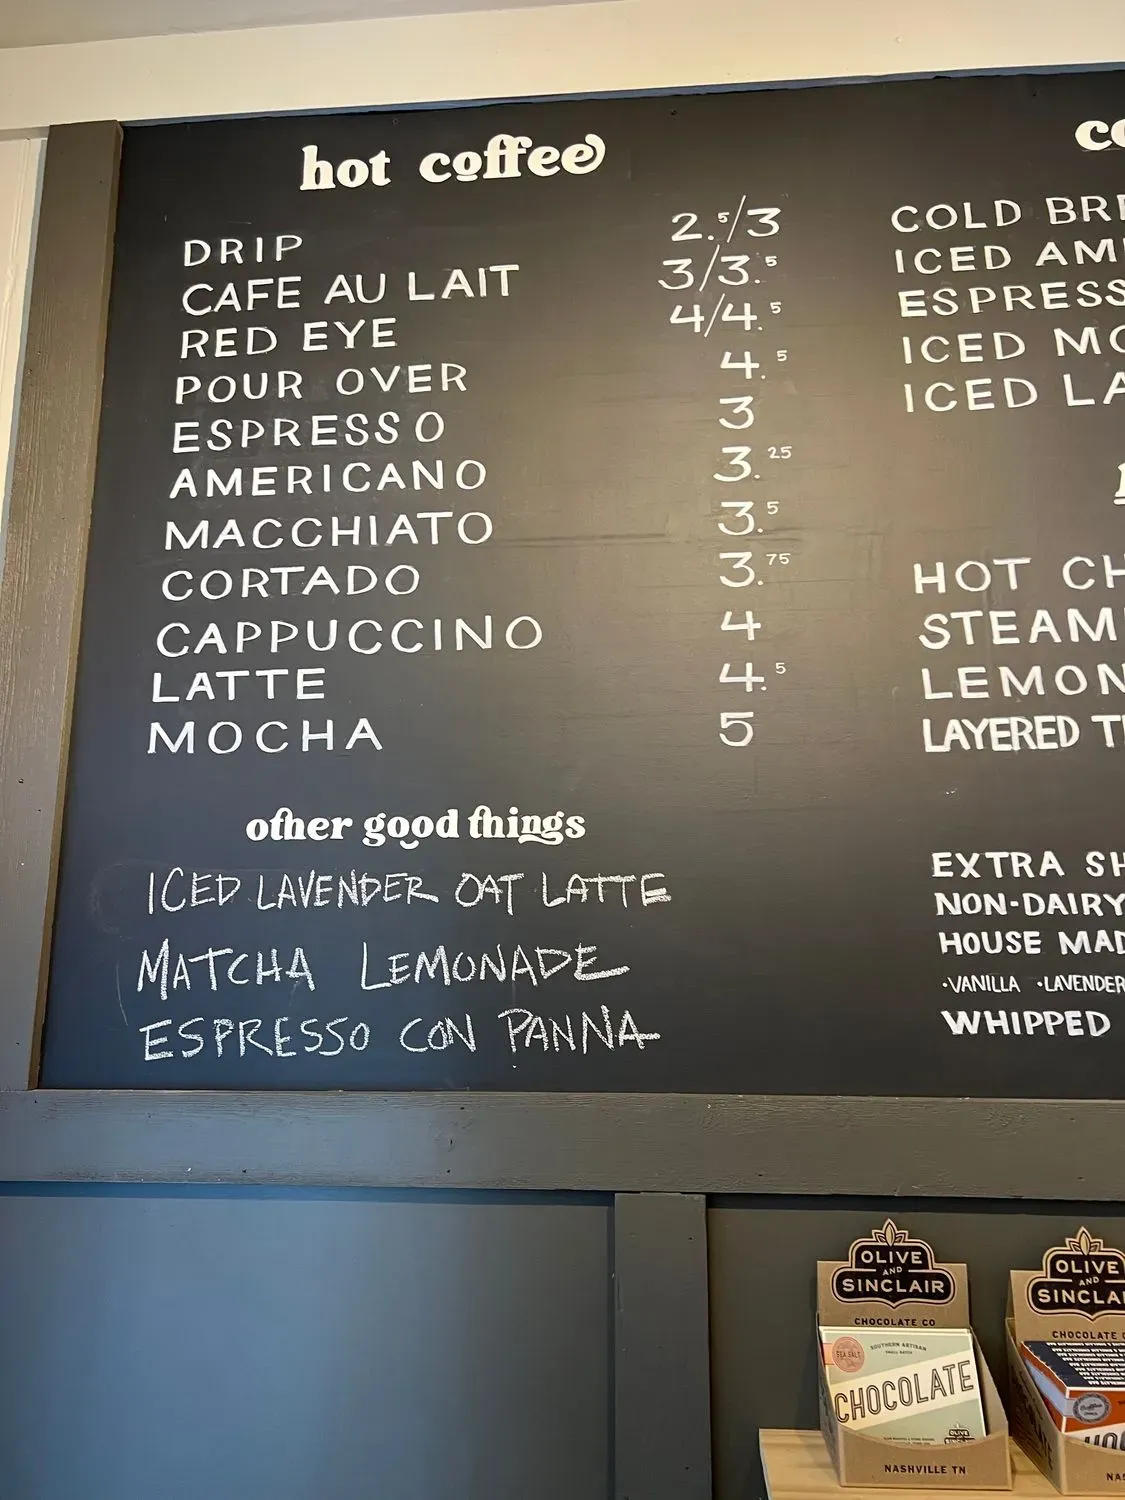 hot coffee
DRIP 2.5/3
CAFE AU LAIT 3/3.5
RED EYE 4/4.5
POUR OVER 4.5
ESPRESSO 3
AMERICANO 3.25
MACCHIATO 3.5
CORTADO 3.75
CAPPUCCINO 4
LATTE 4.5
MOCHA 5
other good things
ICED LAVENDER OAT LATTE
MATCHA LEMONADE
ESPRESSO CON PANNA
co
COLD BRE
ICED AM
ESPRESS
ICED MO
ICED LA
HOT CH
STEAM
LEMON
LAYERED T
EXTRA SH
NON-DAIRY
HOUSE MAD
·VANILLA ·LAVENDER
WHIPPED
OLIVE
AND
SINCLAIR
CHOCOLATE CO
SEA SALT
SOUTHERN ARTISAN
CHOCOLATE
OLIVE
NASHVILLE TN
OLIVE
AND
SINCLAI
CHOCOLATE
NAS